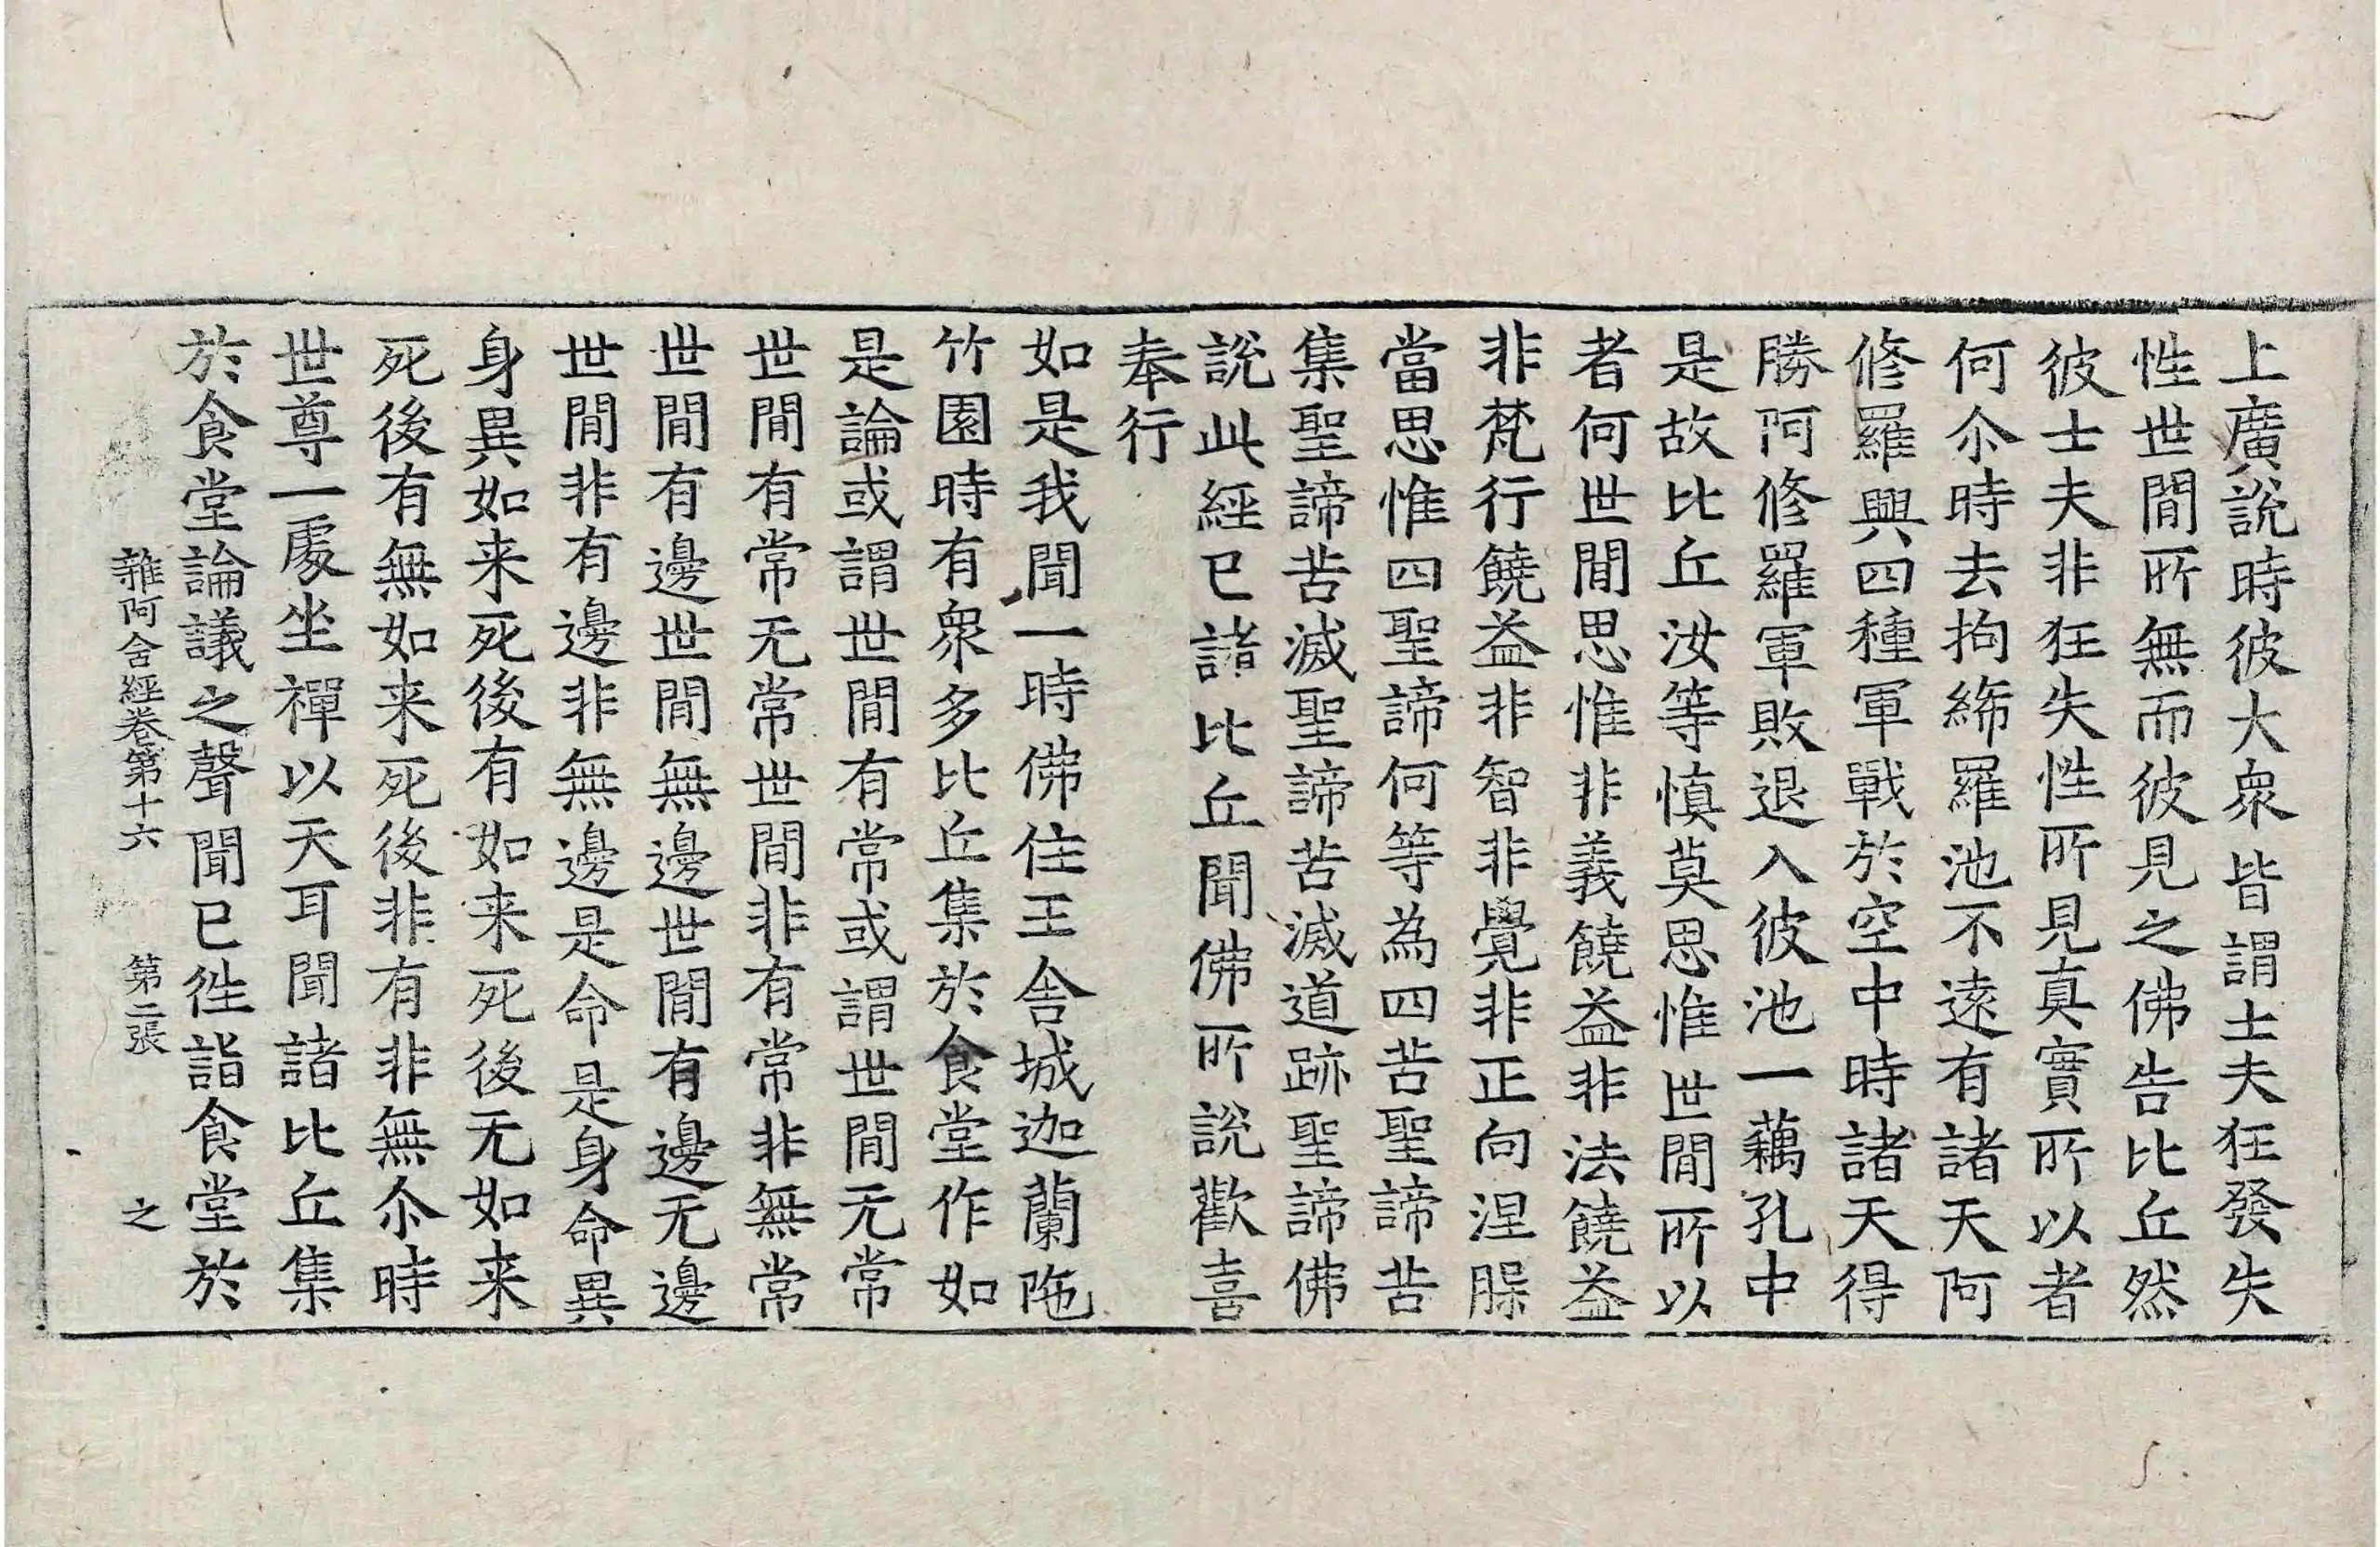 上廣說時彼大衆皆謂士夫狂發失
性世閒所無而彼見之佛告比丘然
彼士夫非狂失性所見真實所以者
何尒時去拘絺羅池不遠有諸天阿
修羅興四種軍戰於空中時諸天得
勝阿修羅軍敗退入彼池一藕孔中
是故比丘汝等慎莫思惟世閒所以
者何世閒思惟非義饒益非法饒益
非梵行饒益非智非覺非正向涅槃
當思惟四聖諦何等為四苦聖諦苦
集聖諦苦滅聖諦苦滅道跡聖諦佛
說此經已諸比丘聞佛所說歡喜
奉行
如是我聞一時佛住王舍城迦蘭陁
竹園時有衆多比丘集於食堂作如
是論或謂世閒有常或謂世閒无常
世閒有常无常世閒非有常非無常
世閒有邊世閒無邊世閒有邊无邊
世閒非有邊非無邊是命是身命異
身異如来死後有如来死後无如来
死後有無如来死後非有非無尒時
世尊一處坐禪以天耳聞諸比丘集
於食堂論議之聲聞已往詣食堂於
雜阿含經卷第十六 第二張 之